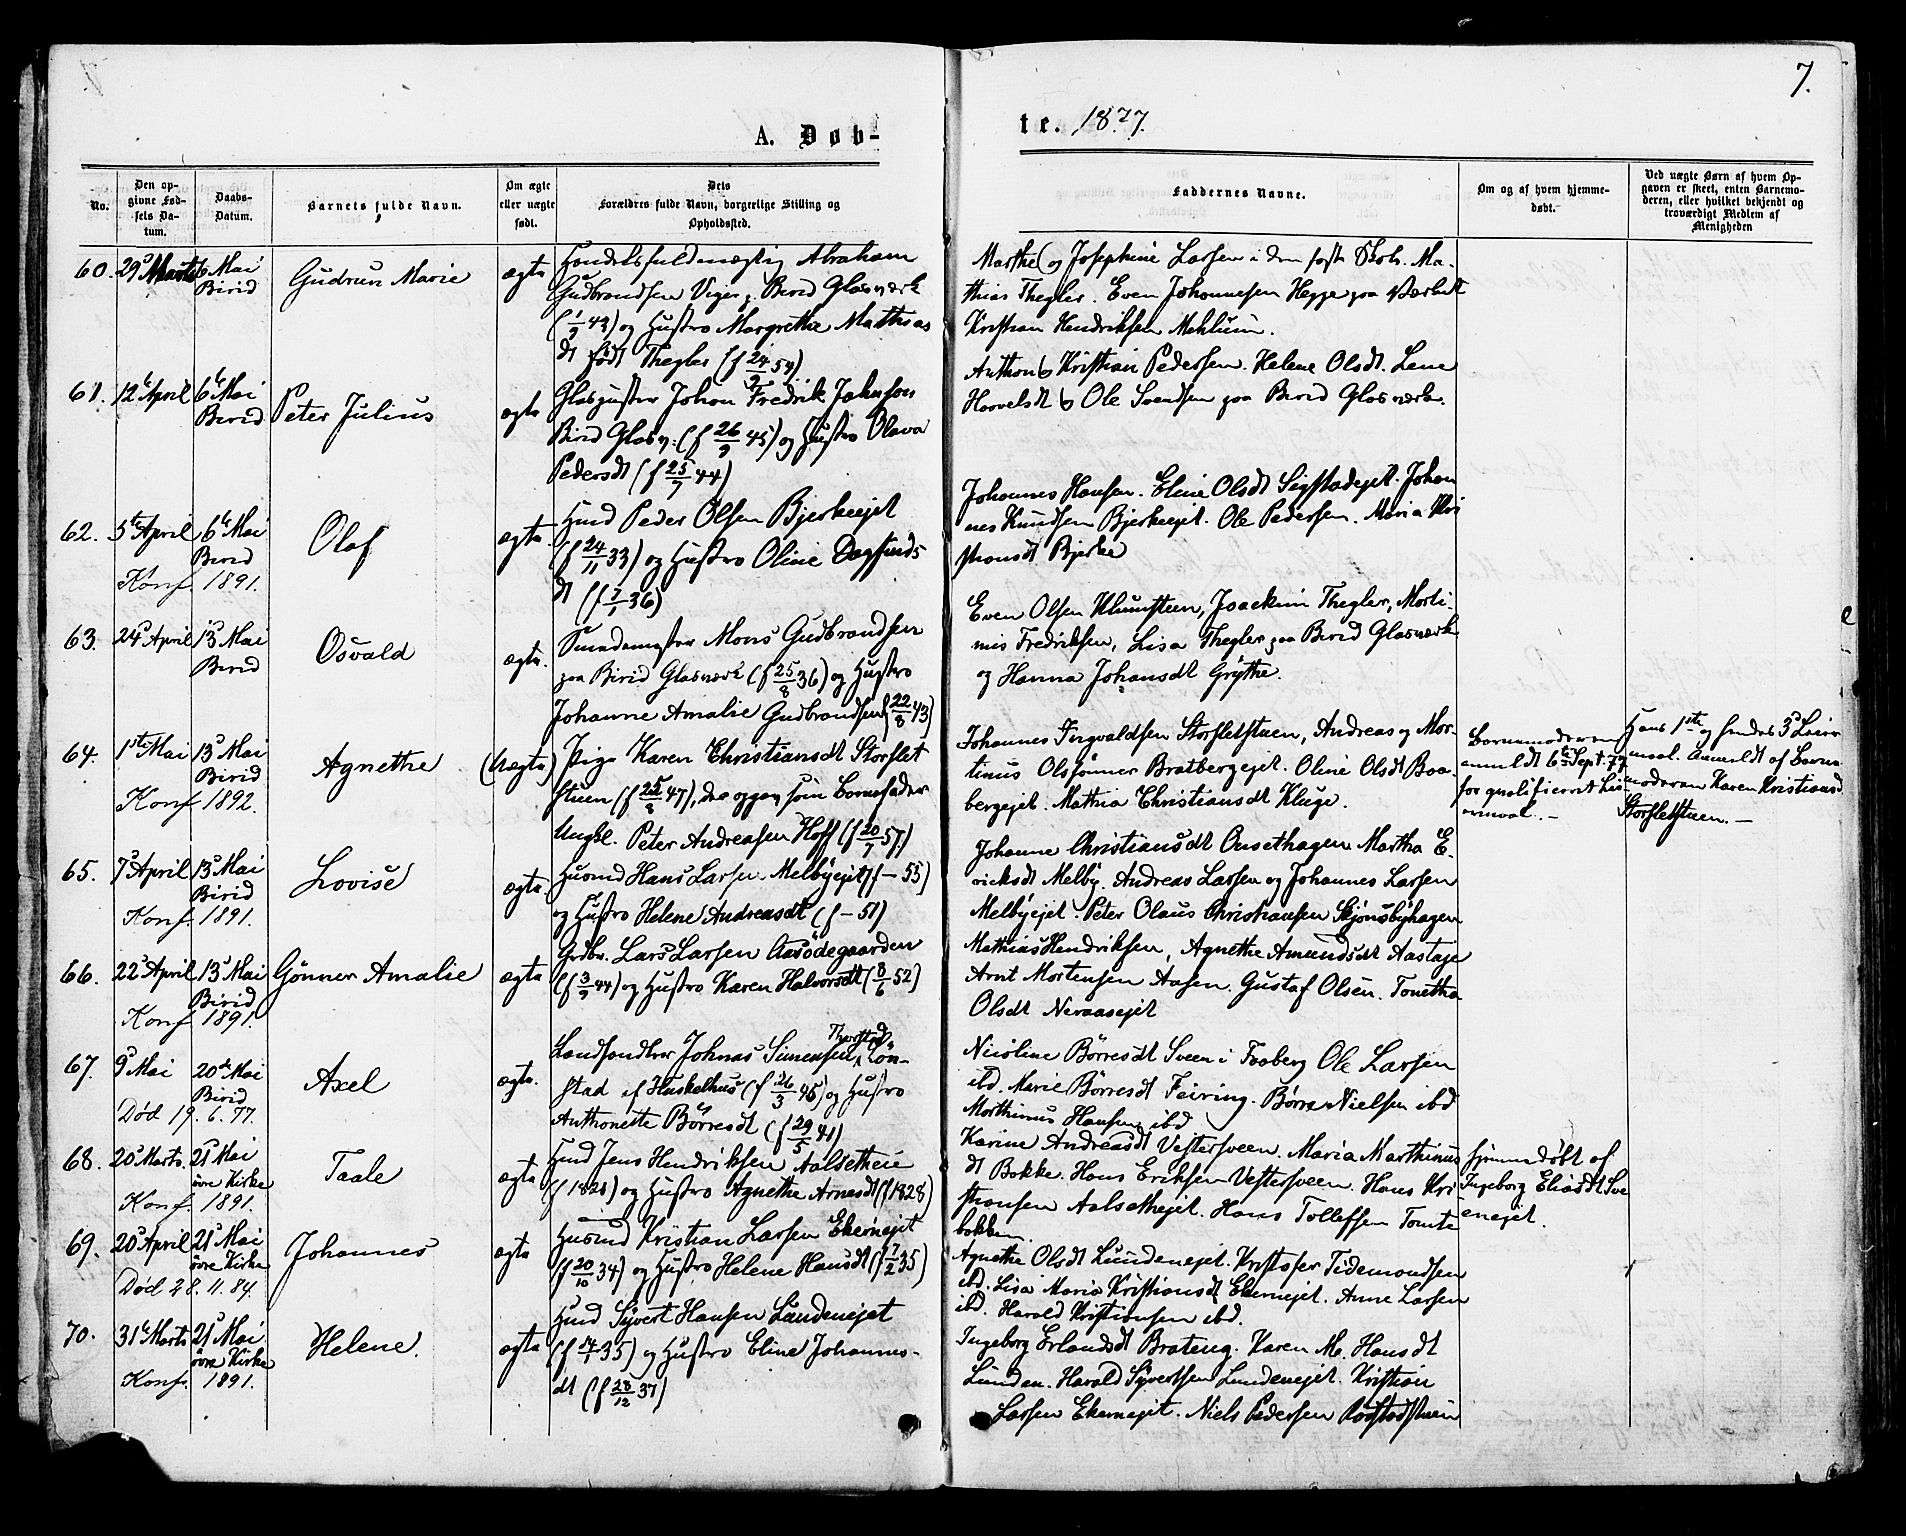 7.
A. Døb-
te. 1877.
No.
Den op-
givne Fød-
sels Da-
tum.
Daabs-
Datum.
Barnets fulde Navn.
Om ægte
eller uægte
født.
Dets
Forældres fulde Navn, borgerlige Stilling og
Opholdssted.
Faddernes Navne.
Om og af hvem hjemme-
døbt.
Ved uægte Børn af hvem Op-
gaven er skeet, enten Barnemo-
deren, eller hvilket bekjendt og
troværdigt Medlem af
Menigheden
60. 29 Marts 6 Mai
Birid
Gudrun Marie
ægte
Handelsfuldmægtig Abraham
Gudbrandsen Birid Glasværk
43) og Hustro Margrethe Mathias
dt født Thegler (f 24
Marthe og Josephine Larsen Ma-
thias Thegler. Even Johannesen Hegge paa Værket
Kristian Hendriksen Mehlum.
61. 12 April 6 Mai
Birid
Peter Julius
ægte
Johan Fredrik Johnsen
Birid Glasv: (f 26/9 45) og Hustro Olava
Pedersdt (f 25/7 44)
Anthon & Kristian Pedersen. Helene Olsdt. Lene
& Ole Svendsen paa Birid Glasværk.
62. 5te April 6te Mai
Birid
Konf. 1891.
Olaf
ægte.
Hmd Peder Olsen Bjerkeejet
(f 24/11 33) og Hustro Oline Dagfinds
dt (f 7/1 36)
Johannes Hansen. Eline Olsdt Sigstadejet. Johan
nes Knudsen Bjerkeejet. Ole Pedersen. Maria Kri
stiansdt Bjerke
63. 24 April 13 Mai
Birid
Osvald
ægte.
Mons Gudbrandsen
paa Birid Glasværk (f 25/8 36) og Hustro
Johanne Amalie Gudbrandsen (22/8 43)
Even Olsen Klumsteen, Joackim Thegler, Morti-
nus Fredriksen, Lisa Thegler paa Birid Glasværk
og Hanna Johansdt Grythe.
64. 1ste Mai 13 Mai
Birid
Konf. 1892.
Agnethe
(Uægte)
Pige Karen Christiansdt Storslet
stuen (f 25/8 47), der opgav som Barnefader
Ungkl. Peter Andreasen Hoff (f 20/7 57.)
Johannes Ingvaldsen Storsletstuen, Andreas og Mor-
tinus Olsønner Bratbergejet. Oline Olsdt Bra-
bergejet. Mathia Christiansdt Kluge.
Barnemoderen
anmeldt 6te Sept. 77
for qvalificeret Lei
ermaal. -
Hans 1ste og hendes 3die Leier
maal. Anmeldt af Barne
moderen Karen Kristiansd
Storsletstuen. -
65. 7 April 13 Mai
Birid
Konf. 1891.
Lovise
ægte.
Husmd Hans Larsen Melbyejet (f - 55)
og Hustro Helene Andreasdt (f - 51)
Johanne Christiansdt Onsethagen Martha E-
ricksdt Melby. Andreas Larsen og Johannes Larsen
Melbyejet. Peter Olaus Christiansen Skjønsbyhagen
66. 22 April 13 Mai
Birid
Konf. 1891.
Gønner Amalie
ægte
Grdbr. Lars Larsen Aasødegaarden
(f 3/9 44) og Hustro Karen Halvorsdt (8/6 52)
Mathias Hendriksen, Agnethe Amundsdt Aastaje
Arnt Mortensen Aasen. Gustaf Olsen. Tonetha
Olsdt Neraasejet
67. 9 Mai 20de Mai
Birid
Død 19. 6. 77.
Axel
ægte.
Landhandler Johnas Simensen Løn-
stad af Huskelhus (f 26/3 45) og Hustro
Anthonette Børresdt (f 29/5 41)
Nicoline Børresdt Sveen i Faaberg Ole Larsen
ibd. Marie Børresdt Feiring. Børre Nielsen ibd
Morthinus Hansen ibd
68. 20 Marts. 21 Mai
øvre Kirke
Konf. 1891.
Taale
ægte
Hmd Jens Hendriksen Aalsetheie
og Hustro Agnethe Arnesdt (f 1828)
Karine Andreasdt Vestersveen. Maria Marthinus
dt Bakke. Hans Eriksen Vestersveen. Hans Kri
stiansen Aalsethejet. Hans Tollefsen Tomte
bakken.
Hjemmedøbt af
Ingeborg Eliasdt Sve
enejet.
69. 20 April 21 Mai
øvre Kirke
Død 28. 11. 84.
Johannes
ægte
Husmd Kristian Larsen Ekernejet
(f 20/10 34) og Hustro Helene Hansdt (f 7/2 35)
Agnethe Olsdt Lundenejet. Kristofer Tidemandsen
ibd. Lisa Maria Kristiansdt Ekernejet. Anne Larsen
ibd. Harald Kristiansen ibd.
70. 31 Marts 21 Mai
øvre Kirke
Konf. 1891.
Helene.
ægte
Hmd Syvert Hansen Lundenejet
(f 14/1 35) og Hustro Eline Johannes-
dt (f 28/12 37)
Ingeborg Erlandsdt Brateng. Karen M. Hansdt
Lunden. Harald Syvertsen Lundenejet. Kristian
Larsen Ekernejet. Niels Pedersen Røstadstuen